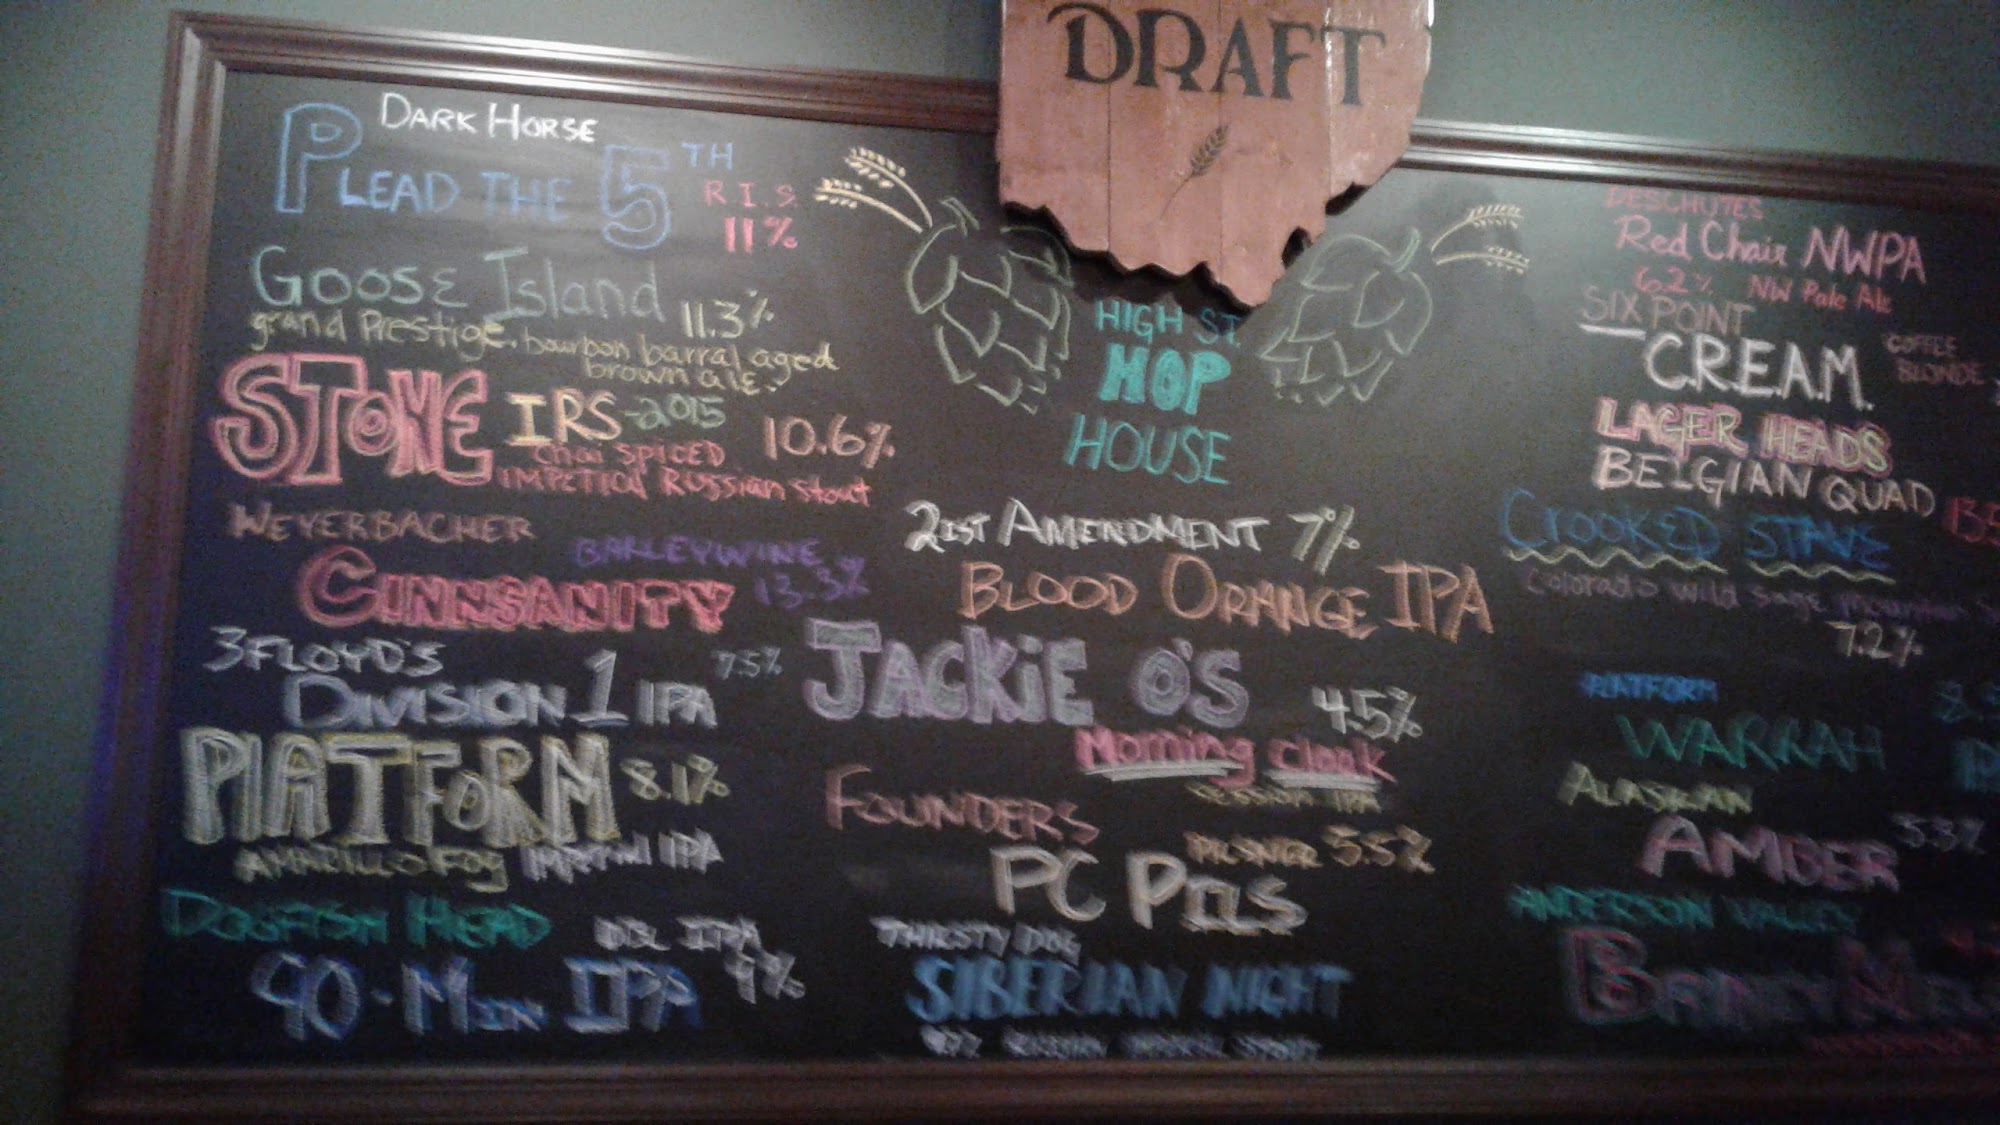 DRAFT
DARK HORSE
PLEAD THE 5TH
R.I.S.
11%
GOOSE ISLAND 11.3%
grand Prestige. bourbon barral aged
brown ale.
STONE IRS-2015 10.6%
Chai SPICED
Russian Stout
WEYERBACHER
BARLEYWINE
CINNSANITY 13.3%
3FLOYD'S 7.5%
DIVISION 1 IPA
PLATFORM 8.1%
IPA
DOGFISH HEAD DBL IPA
90-MIN IPA 9%
HIGH ST.
HOP
HOUSE
21ST AMENDMENT 7%
BLOOD ORANGE IPA
JACKIE O'S 4.5%
Morning cloak
SESSION IPA
FOUNDERS
PILSNER 5.5%
PC PILS
THIRSTY DOG
SIBERIAN NIGHT
RUSSIAN IMPERIAL STOUT
DESCHUTES
Red Chair NWPA
6.2% NW Pale Ale
SIXPOINT
C.R.E.A.M. COFFEE
BLONDE
LAGER HEADS
BELGIAN QUAD
CROOKED STAVE
Colorado wild sage mountain
7.2%
PLATFORM
WARRAH
ALASKAN
AMBER 5.3%
ANDERSON VALLEY